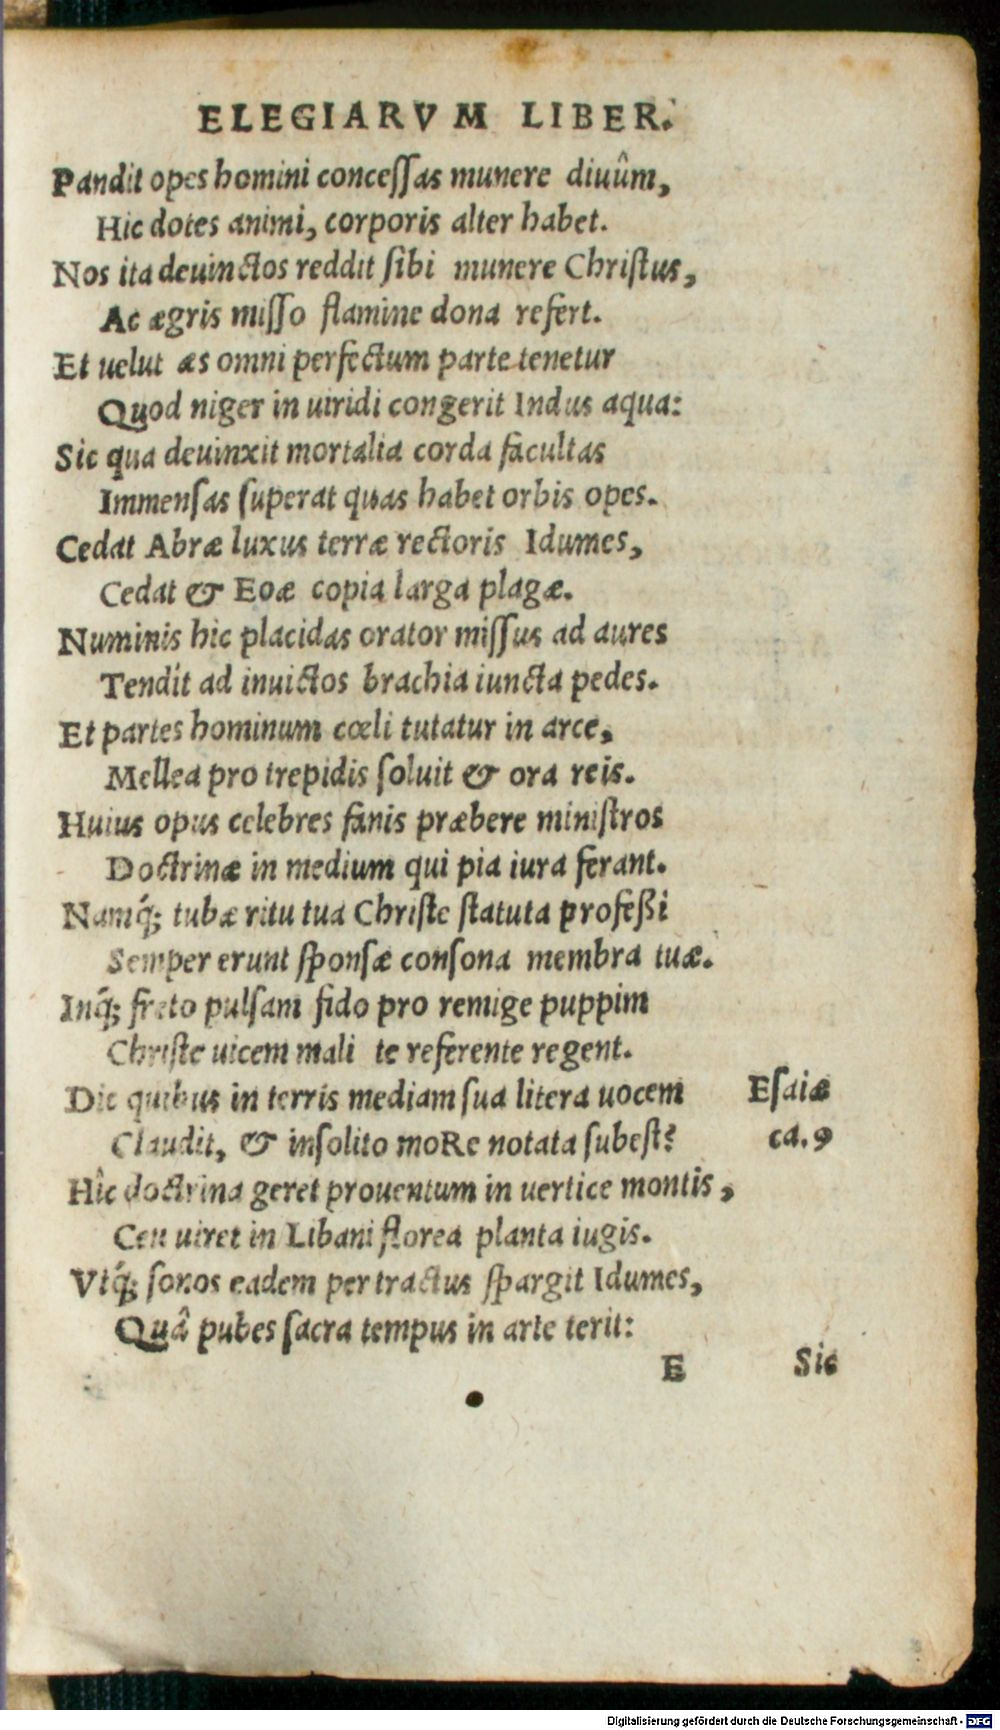 ELEGIARVM LIBER.
Pandit opes homini conceſſas munere diuûm,
Hic dotes animi, corporis alter habet.
Nos ita deuinctos reddit ſibi munere Chriſtus,
Ac ægris miſſo flamine dona refert.
Et uelut æs omni perfectum parte tenetur
Quod niger in uiridi congerit Indus aqua:
Sic qua deuinxit mortalia corda facultas
Immenſas ſuperat quas habet orbis opes.
Cedat Abræ luxus terræ rectoris Idumes,
Cedat & Eoæ copia larga plagæ.
Numinis hic placidas orator miſſus ad aures
Tendit ad inuictos brachia iuncta pedes.
Et partes hominum cœli tutatur in arce,
Mellea pro trepidis ſoluit & ora reis.
Huius opus celebres fanis præbere miniſtros
Doctrinæ in medium qui pia iura ferant.
Namq́; tubæ ritu tua Chriſte ſtatuta profeßi
Semper erunt ſponſæ conſona membra tuæ.
Inq́; freto pulſam fido pro remige puppim
Chriſte uicem mali te referente regent.
Dic quibus in terris mediam ſua litera uocem
Eſaiæ
Claudit, & inſolito moRe notata ſubeſt?
ca. 9
Hîc doctrina geret prouentum in uertice montis,
Ceu uiret in Libani florea planta iugis.
Vtq́; ſonos eadem per tractus ſpargit Idumes,
Quâ pubes ſacra tempus in arte terit:
E Sic
Digitalisierung gefördert durch die Deutsche Forschungsgemeinschaft - DFG